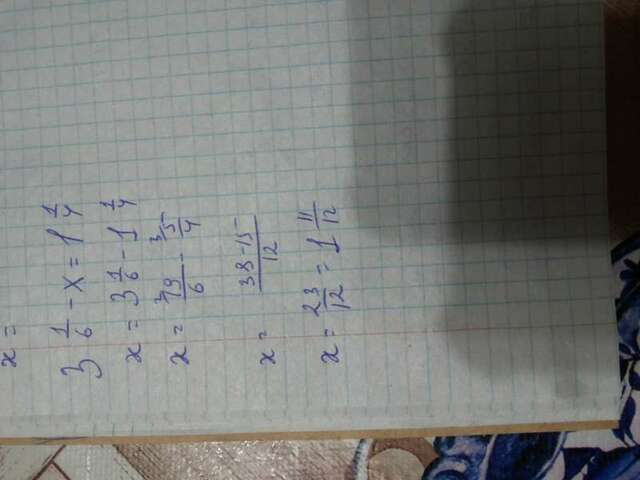 x =
3 1/6 - x = 1 1/4
x = 3 1/6 - 1 1/4
x = ²19/6 - ³5/4
x = 38-15/12
x = 23/12 = 1 11/12